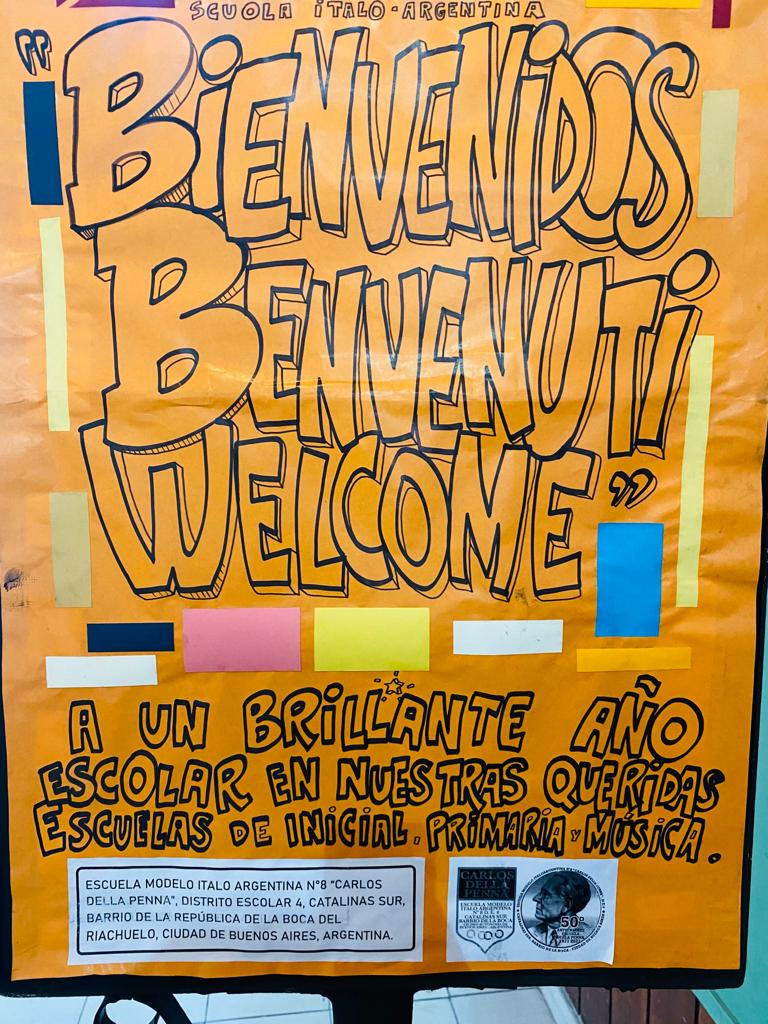 SCUOLA iTALO-ARGENTiNA
"BiENVENiDOS
BENVENUTi
WELCOME"
A UN BRiLLANTE AÑO
ESCOLAR EN NUESTRAS QUERiDAS
ESCUELAS DE iNiCiAL, PRiMARiA y MÚSiCA.
ESCUELA MODELO ITALO ARGENTINA N°8 "CARLOS
DELLA PENNA", DISTRITO ESCOLAR 4, CATALINAS SUR,
BARRIO DE LA REPÚBLICA DE LA BOCA DEL
RIACHUELO, CIUDAD DE BUENOS AIRES, ARGENTINA.
CARLOS
DELLA
PENNA
ESCUELA MODELO
ITALO ARGENTINA
N° 8 D.E. 4
CATALINAS SUR
BARRIO DE LA BOCA
50°
ANIVERSARIO
ESCUELA
DELLA PENNA